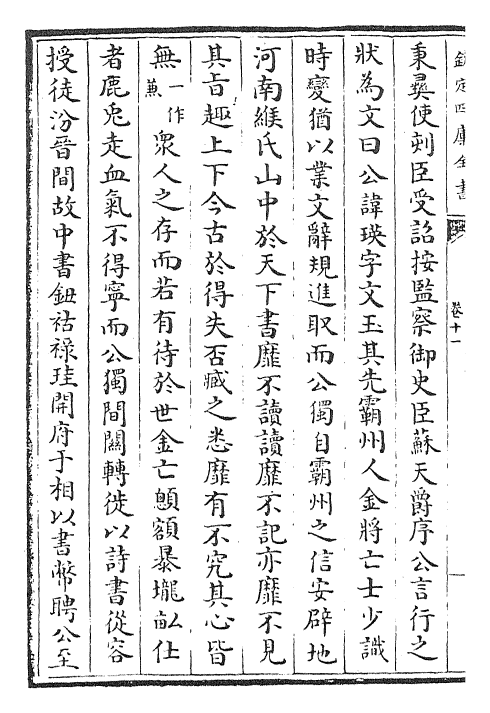 欽定四庫全書
卷十一
秉彞使剡臣受詔按監察御史臣蘇天爵序公言行之
狀為文曰公諱瑛字文玉其先霸州人金將亡士少識
時變猶以業文辭規進取而公獨自霸州之信安辟地
河南緱氏山中於天下書靡不讀讀靡不記亦靡不見
其㫖趣上下今古於得失否臧之悉靡有不究其心皆
無一作兼衆人之存而若有待於世金亡顦顇暴壠畝仕
者鹿兎走血氣不得寧而公獨間關轉徙以詩書從容
授徒汾晉間故中書鈕祜祿珪開府于相以書幣聘公至